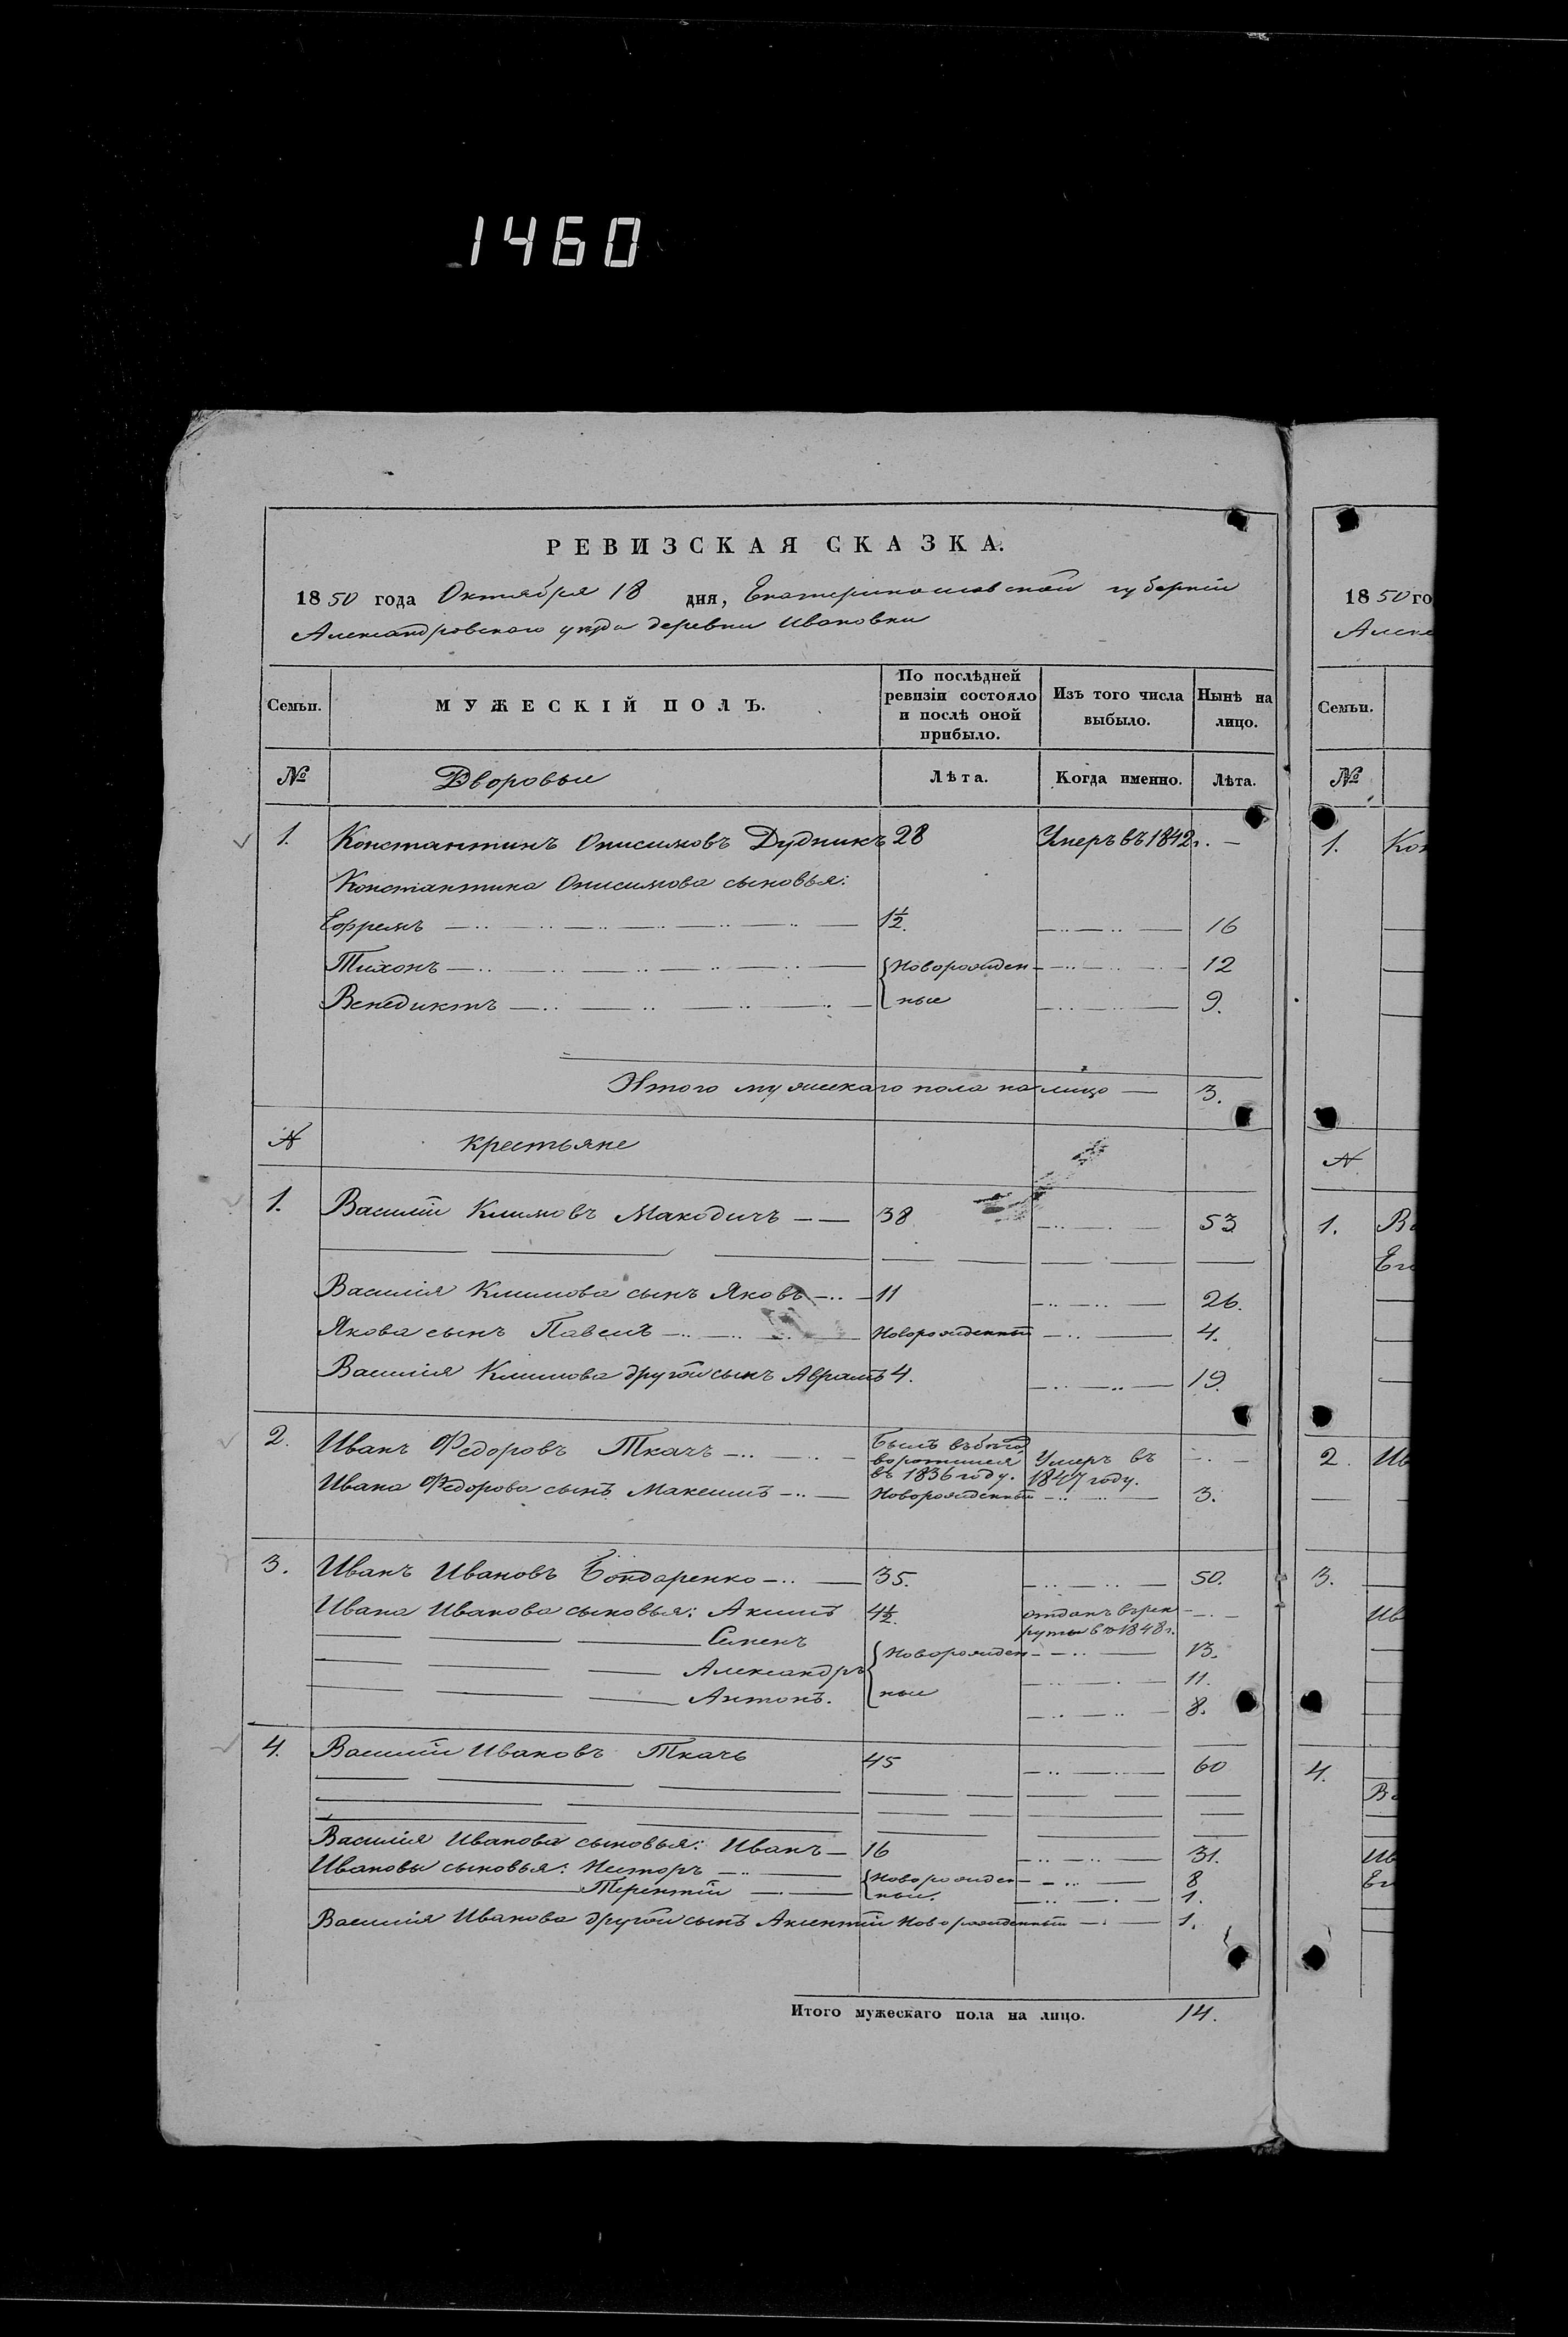 1460
РЕВИЗСКАЯ СКАЗКА.
1850 года Октября 18 дня, Екатеринославской губерніи
Александровского уезда деревни Ивановки
Семьи. МУЖЕСКІЙ ПОЛЪ. По послѣдней ревизіи состояло и послѣ оной прибыло. Изъ того числа выбыло. Нынѣ на лицо.
№ Дворовые Лѣта. Когда именно. Лѣта.
1. Константинъ Онисимовъ Дудникъ 28 Умеръ въ 1842 г. —
Константина Онисимова сыновья:
Ефремъ 1½. 16
Тихонъ Новорожден- 12
Венедиктъ ные 9.
Итого мужескаго пола на лицо — 3.
№ Крестьяне
1. Василій Климовъ Макодичъ — — 38 53
Василія Климова сынъ Яковъ 11 26.
Якова сынъ Павелъ Новорожденный 4.
Василія Климова другой сынъ Аврамъ 4. 19.
2. Иванъ Федоровъ Ткачъ Былъ въ бегах воротился въ 1836 году. Умеръ въ 1847 году.
Ивана Федорова сынъ Максимъ Новорожденный 3.
3. Иванъ Ивановъ Бондаренко 35. 50.
Ивана Иванова сыновья: Акимъ 4½. отданъ въ рекруты въ 1848 г.
Семенъ Новорожден- 13.
Александръ 11.
Антонъ. ные 8.
4. Василій Ивановъ Ткачь 45 60
Василія Иванова сыновья: Иванъ — 16 31.
Ивановы сыновья: Несторъ Новорожден- 8
Терентій ные. 1.
Василія Иванова другой сынъ Аксентій Новорожденный 1.
Итого мужескаго пола на лицо. 14.
1850 го
Алекс
Семьи.
№
1. Кон
№
1. Ва
Ег
2. Ив
3.
Ив
4.
Ва
Ив
Ег